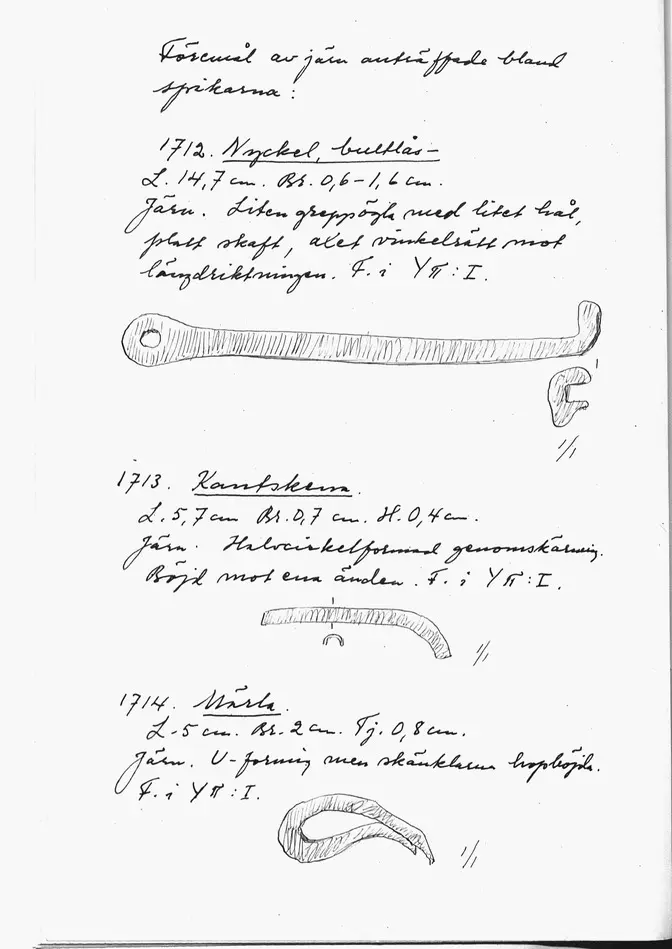 Föremål av järn anträffade bland
spikarna :
1712. Nyckel, bultlås-
L. 14,7 cm. Br. 0,6-1,6 cm.
Järn. Liten greppögla med litet hål,
platt skaft, axet vinkelrätt mot
längdriktningen. F. i Yπ : I.
1/1
1713. Kantskena.
L. 5,7 cm Br. 0,7 cm. H. 0,4 cm.
Järn. Halvcirkelformad genomskärning.
Böjd mot ena änden. F. i Yπ : I.
1/1
1714. Märla.
L. 5 cm. Br. 2 cm. Tj. 0,8 cm.
Järn. U-formig men skänklarna hopböjda.
F. i Yπ : I.
1/1